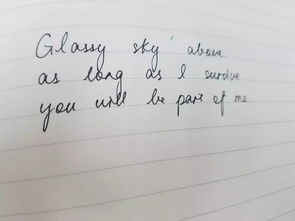 Glassy sky above.
as long as I survive
you will be part of me